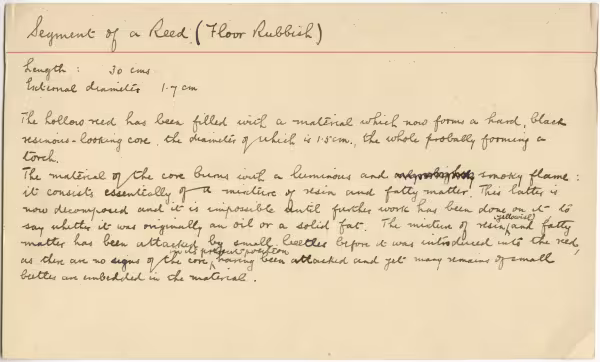 Segment of a Reed (Floor Rubbish)
Length : 30 cms
External diameter 1.7 cm
The hollow reed has been filled with a material which now forms a hard, black
resinous-looking core, the diameter of which is 1.5 cm., the whole probably forming a
torch.
The material of the core burns with a luminous and smoky flame :
it consists essentially of a mixture of resin and fatty matter. This latter is
now decomposed and it is impossible until further work has been done on it to
say whether it was originally an oil or a solid fat. The mixture of resin (yellowish) and fatty
matter has been attacked by small beetles before it was introduced into the reed,
as there are no signs of the core in its present position having been attacked and yet many remains of small
beetles are embedded in the material.